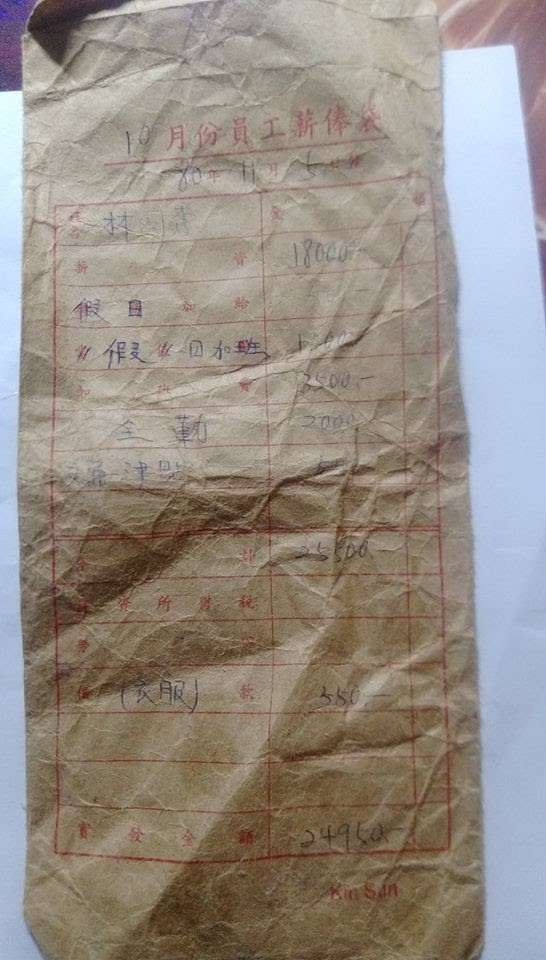 10月份員工薪俸袋
80年11月5日份
姓名 林 金 額
薪資 18000.-
假日加給
"假"日加班
加班費 3500.-
全勤 2000.-
津貼
合計 25500.-
薪資所得稅
勞保
借(衣服)款 550.-
實發金額 24950.-
Kin Sun